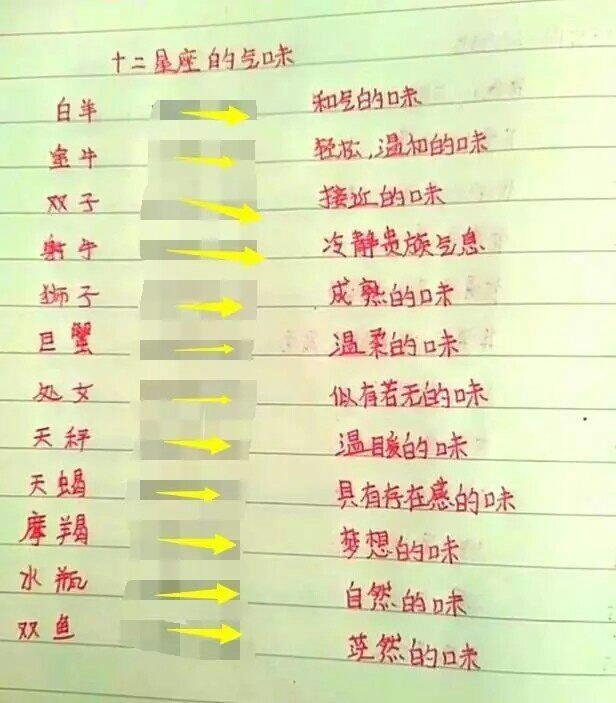 十二星座的气味
白羊 和气的味
金牛 轻松,温和的味
双子 接近的味
射手 冷静贵族气息
狮子 成熟的味
巨蟹 温柔的味
处女 似有若无的味
天秤 温暖的味
天蝎 具有存在感的味
摩羯 梦想的味
水瓶 自然的味
双鱼 茫然的味